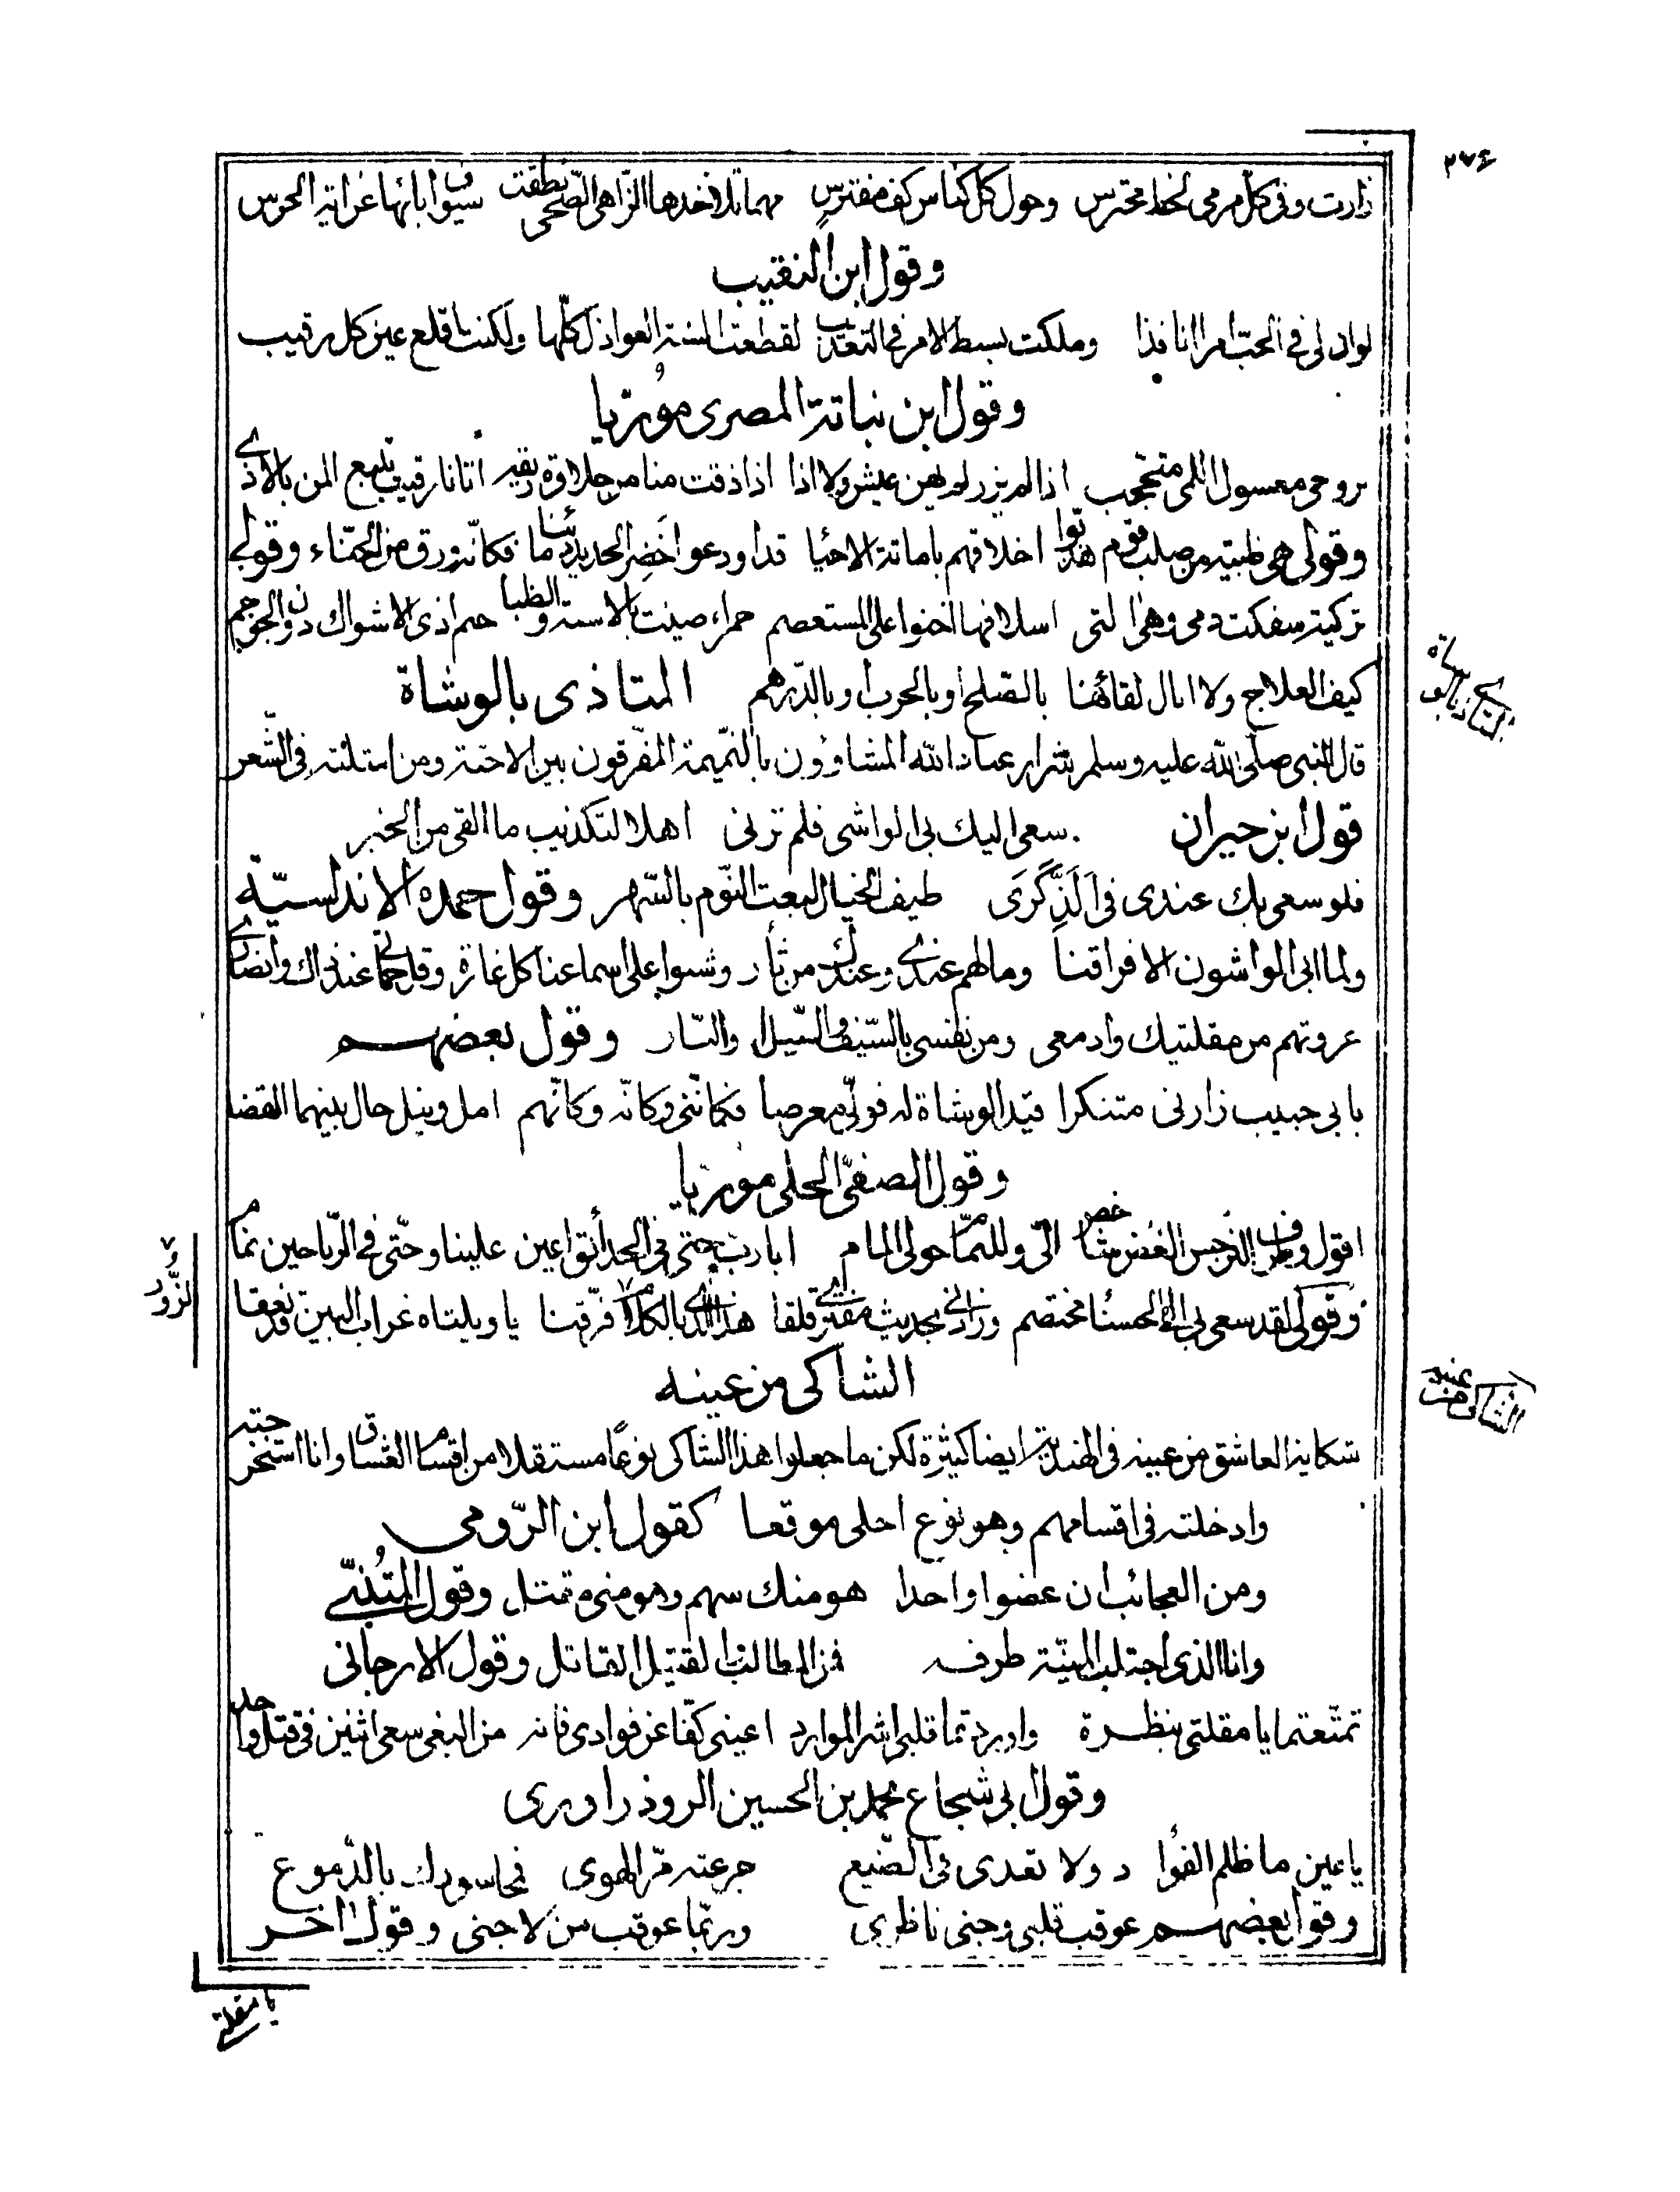 ٢٧٤
زارت وفى كل مرمى لحظ محترس وحول كل كناس كف مفترس مهما تلا خدها الزاهى الضحى نطقت سيوف ابائها عن اية الحرس
وقول ابن النقيب
لوان لى فى الحب امرا نافذا وملكت بسط الامر فى التعذيب لقطعت السنة العواذل كلها ولكنت اقلع عين كل رقيب
وقول ابن نباتة المصرى مُورّيا
بروحى معسول اللمى متحجب اذا لم يزر لم يهن عيش ولا اذا اذا ذقت منا من حلاوة ريقه اتانا رقيب يتبع المن بالاذى
وقولى هى ظبية من صلب قوم هذبوا اخلاقهم باماتة الاحيا قد اودعوا خَضِر الحديد دمائنا فكانه ورق من الحناء وقولى
تركية سفكت دمى وهى التى اسلافها اخنوا على المستعصم حمراء صينت بالاسنة والظبا حم اذى الاشواك دون الحوجم
كيف العلاج ولا انال لقائها بالصلح او بالحرب او بالدرهم المتاذى بالوشاة
المتاذى بالوشاة
قال النبى صلى الله عليه وسلم شرار عباد الله المشاوون بالنميمة المفرقون بين الاحبة ومن امثلته فى الشعر
قول ابن حيران سعى اليك بى الواشى فلم ترنى اهلا لتكذيب ما القى من الخبر
فلو سعى بك عندى فى اَلَذِّ كَرَى طيف الخيال لبعت النوم بالسهر وقول حمده الاندلسيّة
ولما ابى الواشون الا فراقنا وما لهم عندى وعندك من ثأر وشنوا على اسماعنا كل غارة وقل حماتى عند ذاك وانصارى
غزوتهم من مقلتيك وادمعى ومن نفسى بالسيف والسيل والنار وقول بعضهم
بابى حبيب زارنى متنكرا فبدا الوشاة له فولّى معرضا فكاننى وكانه وكانهم امل ونيل حال بينهما القضا
وقول الصفىّ الحلى مورّيا
اقول وطرف النرجس الغض شاخص الىّ وللنمام حولى المام ايا ربّ حتى فى الحدائق اعين علينا وحتّى فى الرياحين نمام
وقولى لقد سعى بى الى الحسنا مختصم وزانى بحديث مفترى قلقا هذا الذى بالكلام فرّقنا يا ويلتاه غراب البين قد نعقا
الزُّور
الشاكى من عينه
الشاكى من عينه
شكاية العاشق من عينه فى الهندية ايضا كثيرة لكن ما جعلوا هذا الشاكى نوعًا مستقلا من اقسام العشاق وانا استخرجته
وادخلته فى اقسامهم وهو نوع احلى موقعا كقول ابن الرّومى
ومن العجائب ان عضوا واحدا هو منك سهم وهو منى مقتل وقول المُتنبّى
وانا الذى اجتلب المنيّة طرفه فمن المطالب والقتيل القاتل وقول الارجانى
تمتّعتما يا مقلتى بنظرة واوردتما قلبى اشر الموارد اعينى كفّا عن فوادى فانه من البغى سعى اثنين فى قتل واحد
وقول ابى شجاع محمد بن الحسين الروذراورى
يا عين ما ظلم الفؤاد ولا تعدى فى الصّنيع جرعته مرّ الهوى فمحا سوادك بالدّموع
وقول بعضهم عوقب قلبى وجنى ناظرى وربّما عوقب من لا جنى وقول اخر
يا مقلتى